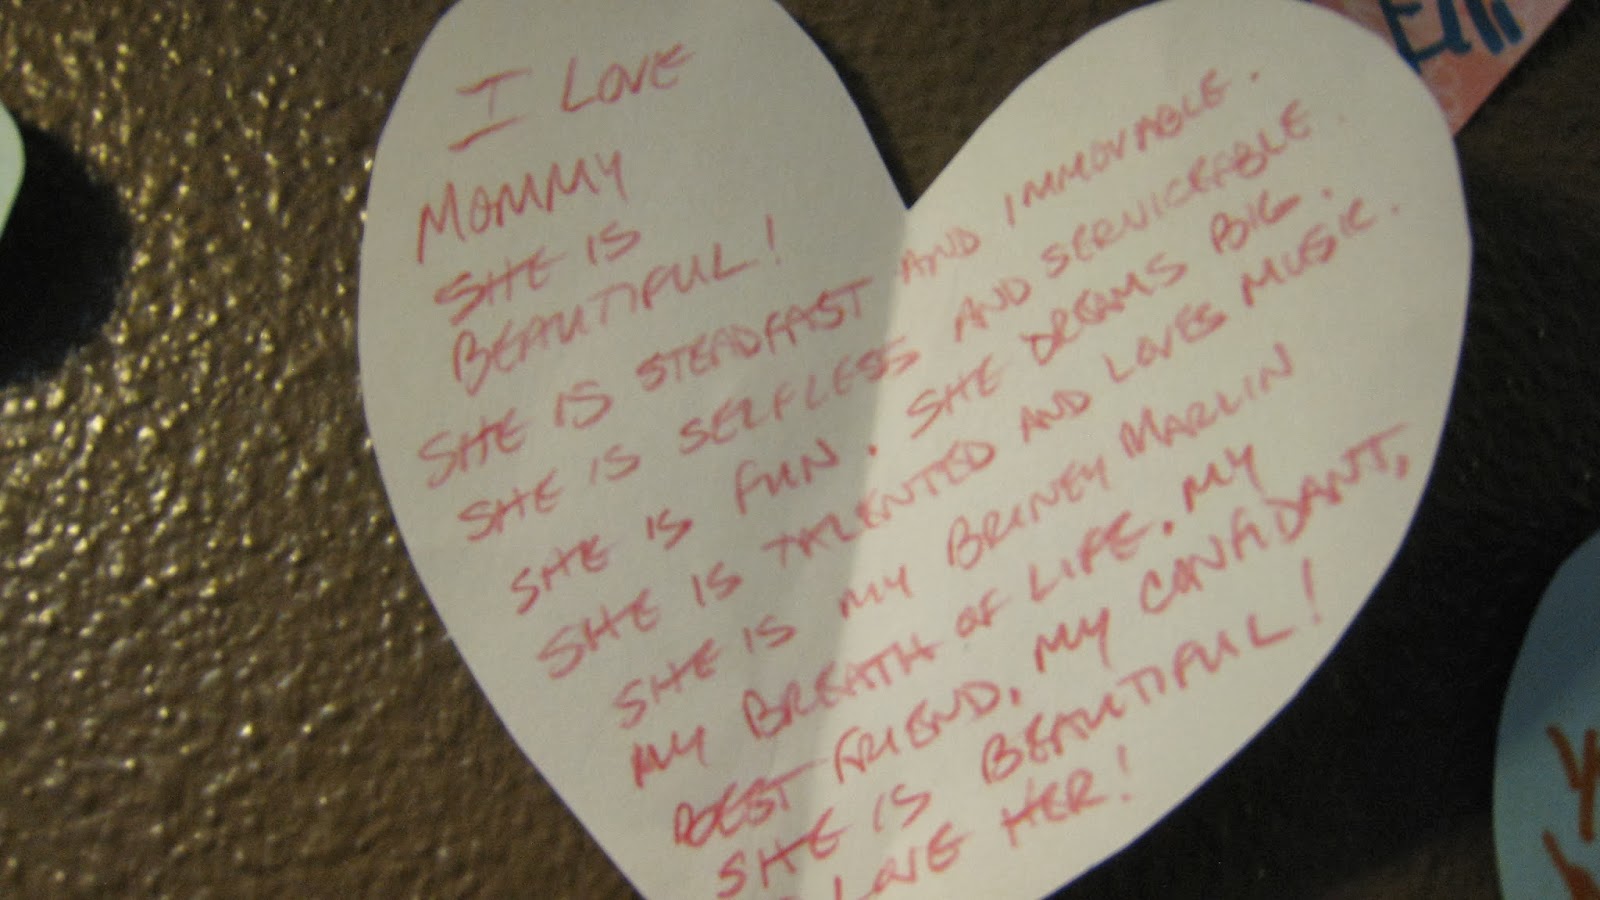 I LOVE
MOMMY
SHE IS
BEAUTIFUL!
SHE IS STEADFAST AND IMMOVABLE.
SHE IS SELFLESS AND SERVICEABLE.
SHE IS FUN. SHE DREAMS BIG.
SHE IS TALENTED AND LOVES MUSIC.
SHE IS MY BRINEY MARLIN
MY BREATH OF LIFE. MY
BEST FRIEND, MY CONFIDANT,
SHE IS BEAUTIFUL!
I LOVE HER!